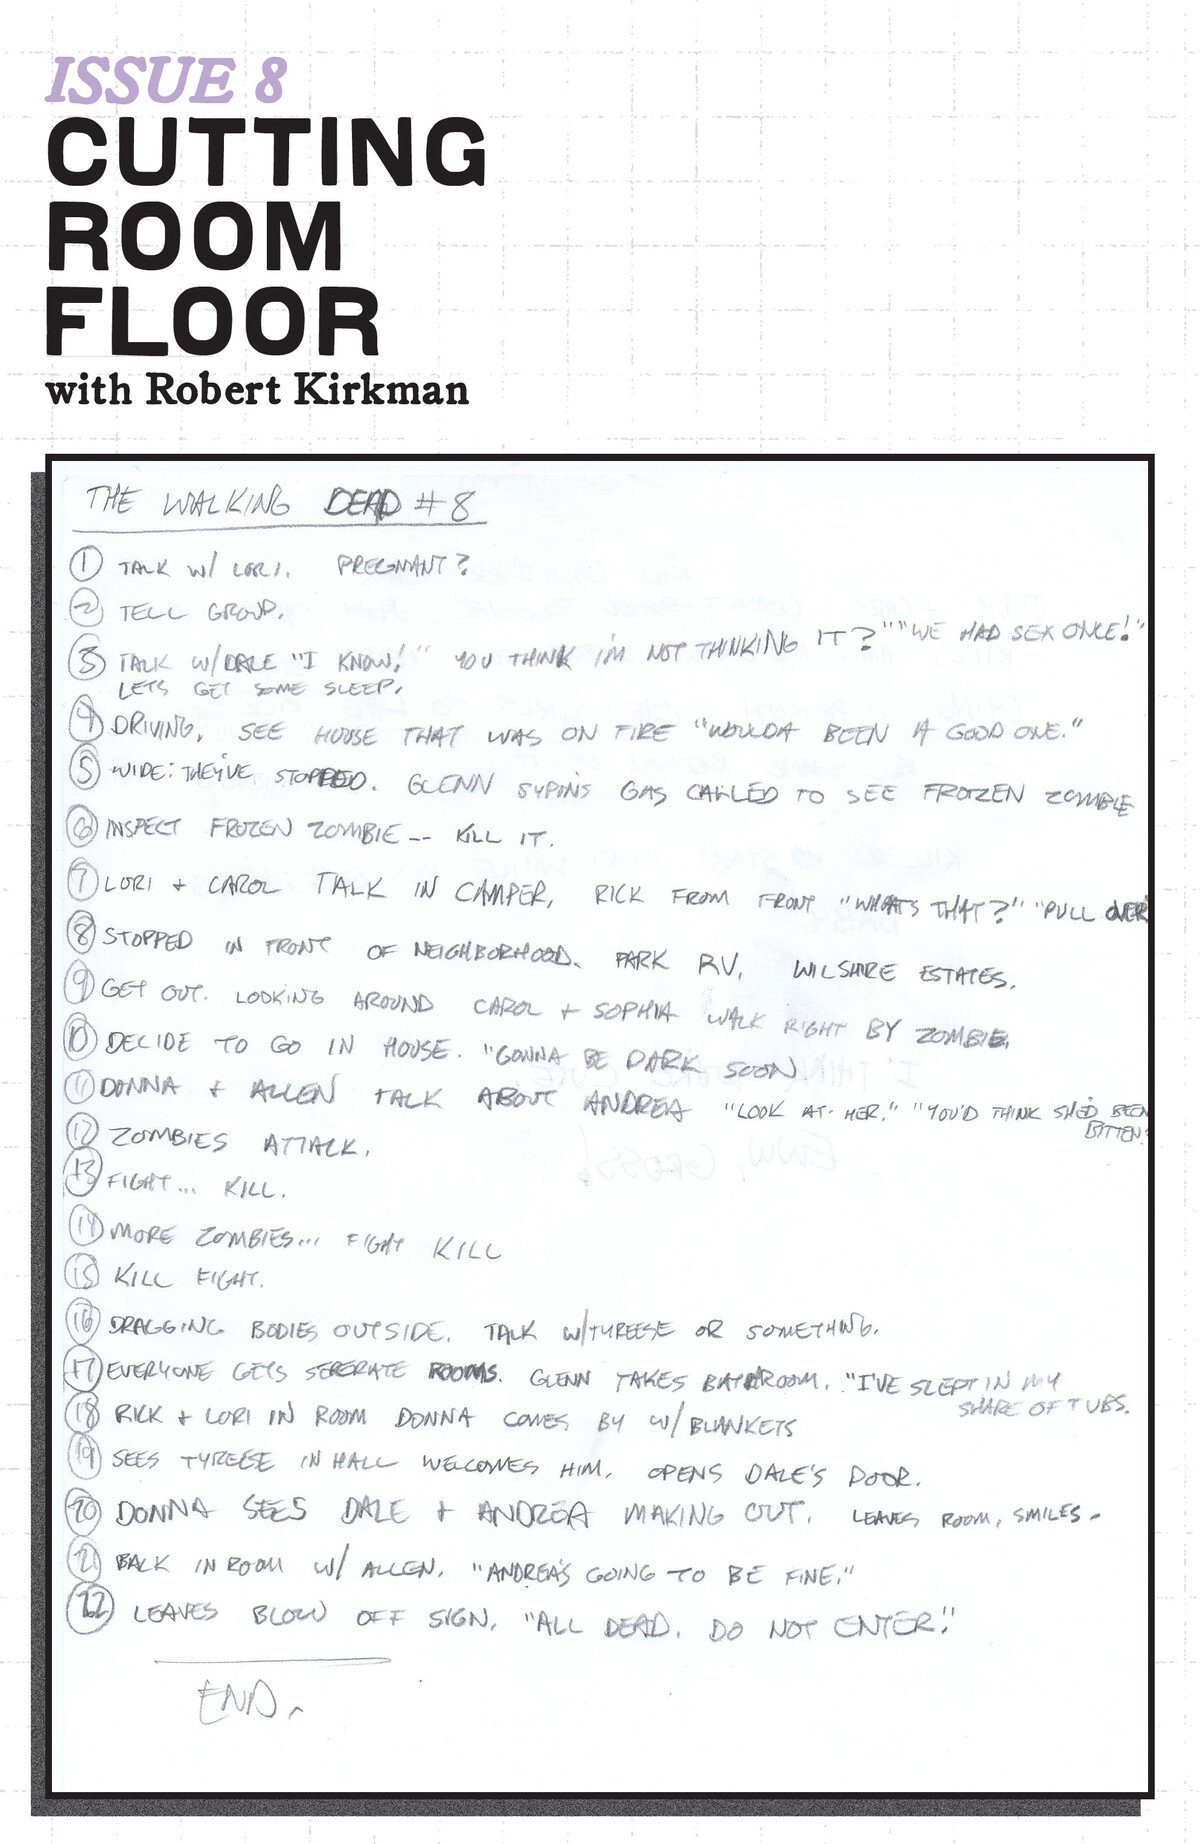 ISSUE 8
CUTTING
ROOM
FLOOR
with Robert Kirkman
THE WALKING DEAD #8
1 TALK W/ LORI. PREGNANT?
2 TELL GROUP.
3 TALK W/DALE "I KNOW!" YOU THINK I'M NOT THINKING IT?" "WE HAD SEX ONCE!"
LETS GET SOME SLEEP.
4 DRIVING, SEE HOUSE THAT WAS ON FIRE "WOULDA BEEN A GOOD ONE."
5 WIDE: THEY'VE STOPPED. GLENN SYPINS GAS CALLED TO SEE FROZEN ZOMBIE
6 INSPECT FROZEN ZOMBIE -- KILL IT.
7 LORI + CAROL TALK IN CAMPER, RICK FROM FRONT "WHATS THAT?" "PULL OVER
8 STOPPED IN FRONT OF NEIGHBORHOOD. PARK RV, WILSHIRE ESTATES.
9 GET OUT. LOOKING AROUND CAROL + SOPHIA WALK RIGHT BY ZOMBIE.
10 DECIDE TO GO IN HOUSE. "GONNA BE DARK SOON
11 DONNA + ALLEN TALK ABOUT ANDREA "LOOK AT HER." "YOU'D THINK SHE'D BEEN
BITTEN."
12 ZOMBIES ATTACK.
13 FIGHT... KILL.
14 MORE ZOMBIES... FIGHT KILL
15 KILL FIGHT.
16 DRAGGING BODIES OUTSIDE. TALK W/TYREESE OR SOMETHING.
17 EVERYONE GETS SEPERATE ROOMS. GLENN TAKES BATHROOM. "I'VE SLEPT IN MY
SHARE OF TUBS.
18 RICK + LORI IN ROOM DONNA COMES BY W/ BLANKETS
19 SEES TYREESE IN HALL WELCOMES HIM. OPENS DALE'S DOOR.
20 DONNA SEES DALE + ANDREA MAKING OUT. LEAVES ROOM, SMILES.
21 BACK IN ROOM W/ ALLEN. "ANDREA'S GOING TO BE FINE."
22 LEAVES BLOW OFF SIGN. "ALL DEAD. DO NOT ENTER!"
END.